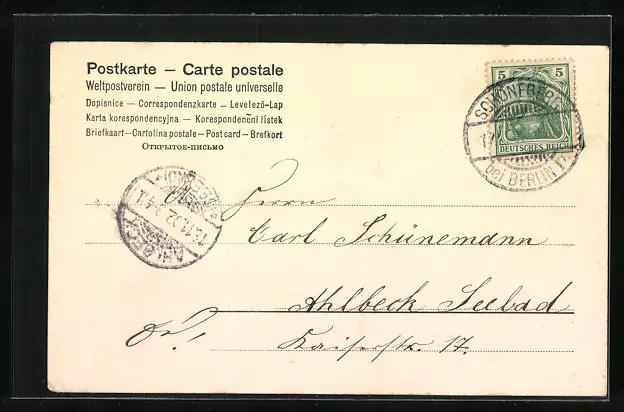 Postkarte — Carte postale
Weltpostverein — Union postale universelle
Dopisnice — Correspondenzkarte — Levelező-Lap
Karta korespondencyjna — Korespondenční lístek
Briefkaart — Cartolina postale — Post card — Brefkort
Открытое-письмо
5 5
DEUTSCHES REICH
SCHÖNEBERG
bei BERLIN
AHLBECK
Herrn
Carl Schünemann
Ahlbeck Seebad
Kaiserstr. 17.